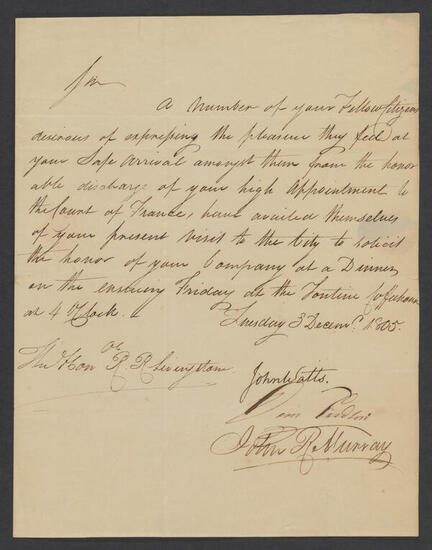 Sir
A Number of your Fellow Citizens
desirous of expressing the pleasure they feel at
your Safe Arrival amongst them from the honor
able discharge of your high Appointment to
the Court of France, have availed themselves
of your present visit to the City to solicit
the honor of your Company at a Dinner
on the ensuing Friday at the Tontine Coffeehouse
at 4 oClock.
Tuesday 3 Decemr. 1805.
The Honble R R Livingston
John Watts.
John R Murray